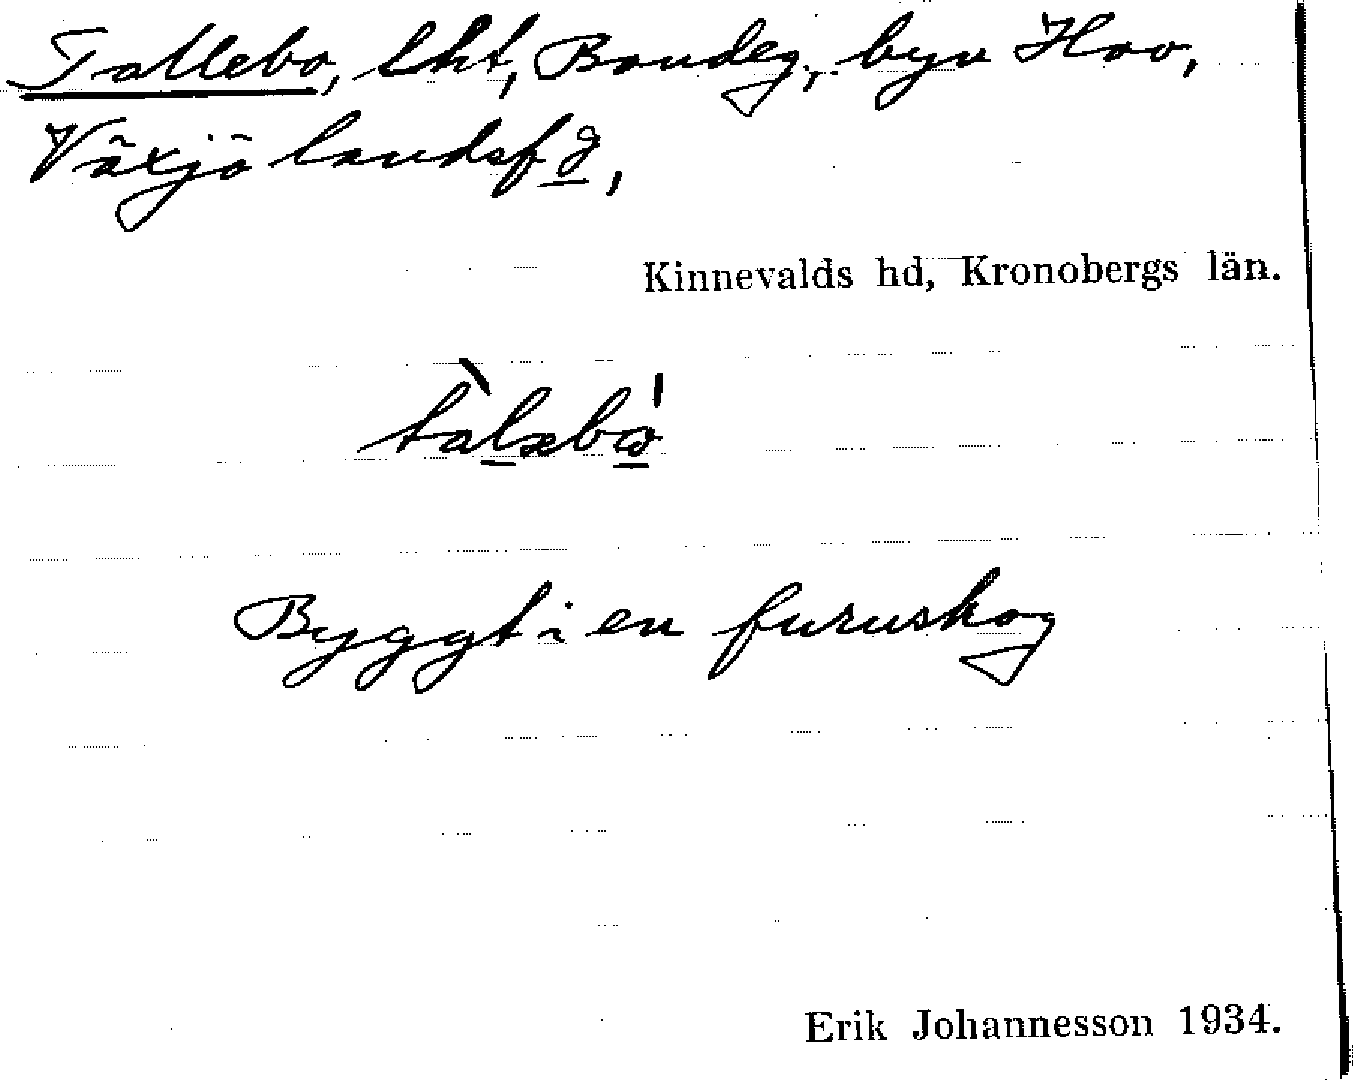 Tallebo, lht, Bondeg., byn Hov,
Växjö landsfg,
Kinnevalds hd, Kronobergs län.
tàlæbo̲ˈ
Byggt i en furuskog
Erik Johannesson 1934.